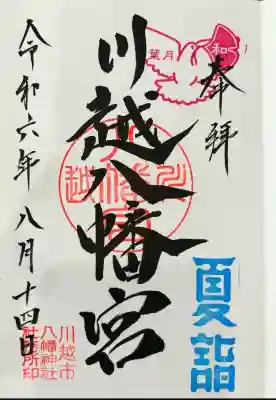 奉拝
川越八幡宮
令和六年八月十四日
葉月
和
夏詣
川越市
八幡神社
社務所印